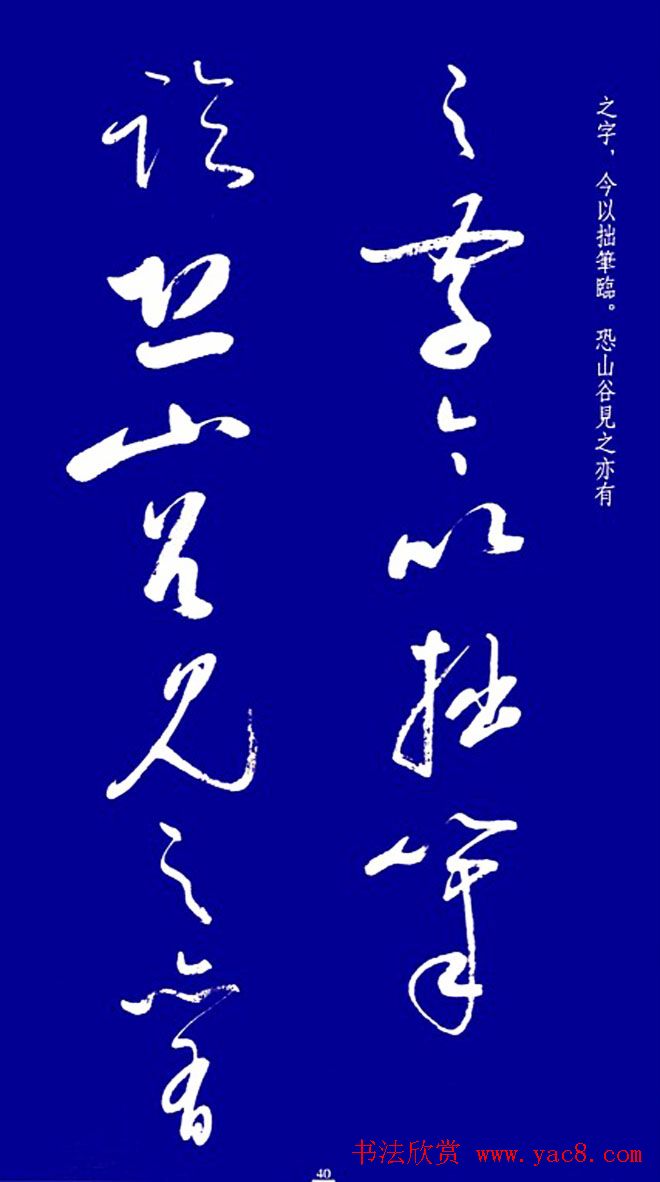 之字，今以拙筆臨。恐山谷見之亦有
之字今以拙筆
臨恐山谷見之亦有
40
书法欣赏 www.yac8.com